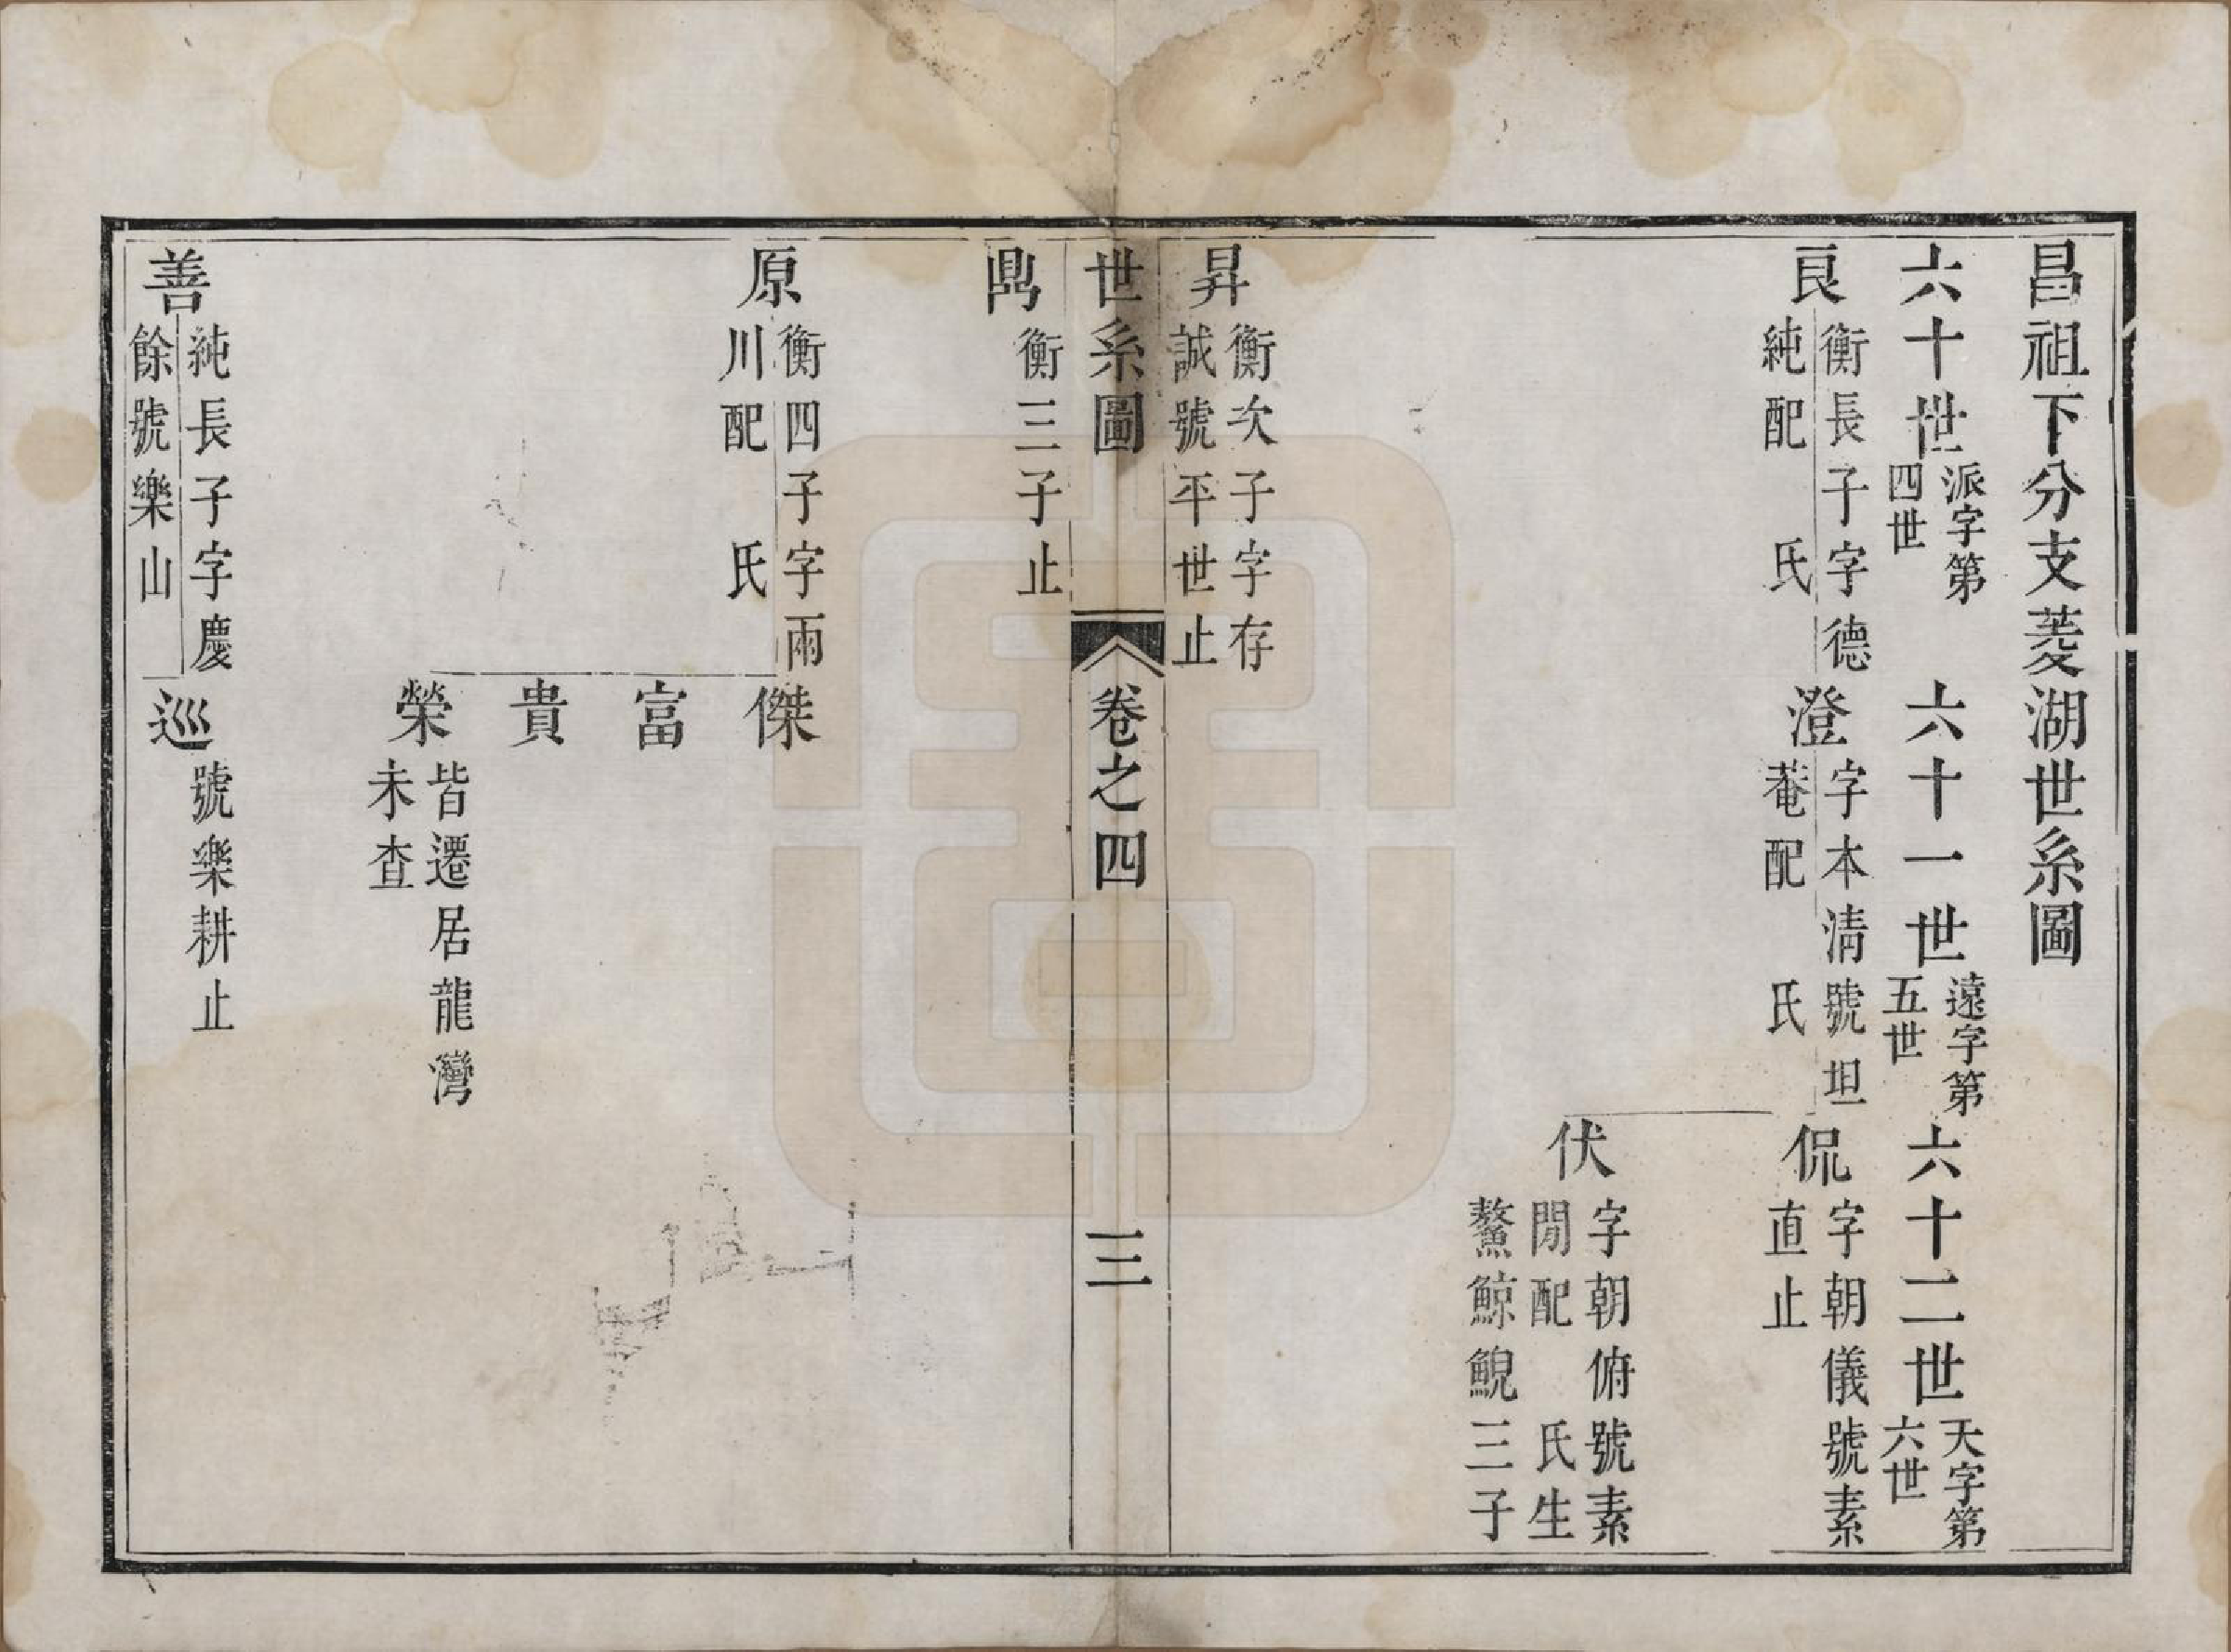 昌祖下分支菱湖世系圖
六十世
派字第
四世
六十一世
遠字第
五世
六十二世
天字第
六世
良
衡長子字德
純配　氏
澄
字本清號坦
菴配　氏
侃
字朝儀號素
直止
伏
字朝俯號素
閒配　氏生
鰲鯨鯢三子
昇
衡次子字存
誠號平世止
世系圖
卷之四
三
鼎
衡三子止
原
衡四子字雨
川配　氏
傑
富
貴
榮
皆遷居龍灣
未查
善
純長子字慶
餘號樂山
巡
號樂耕止